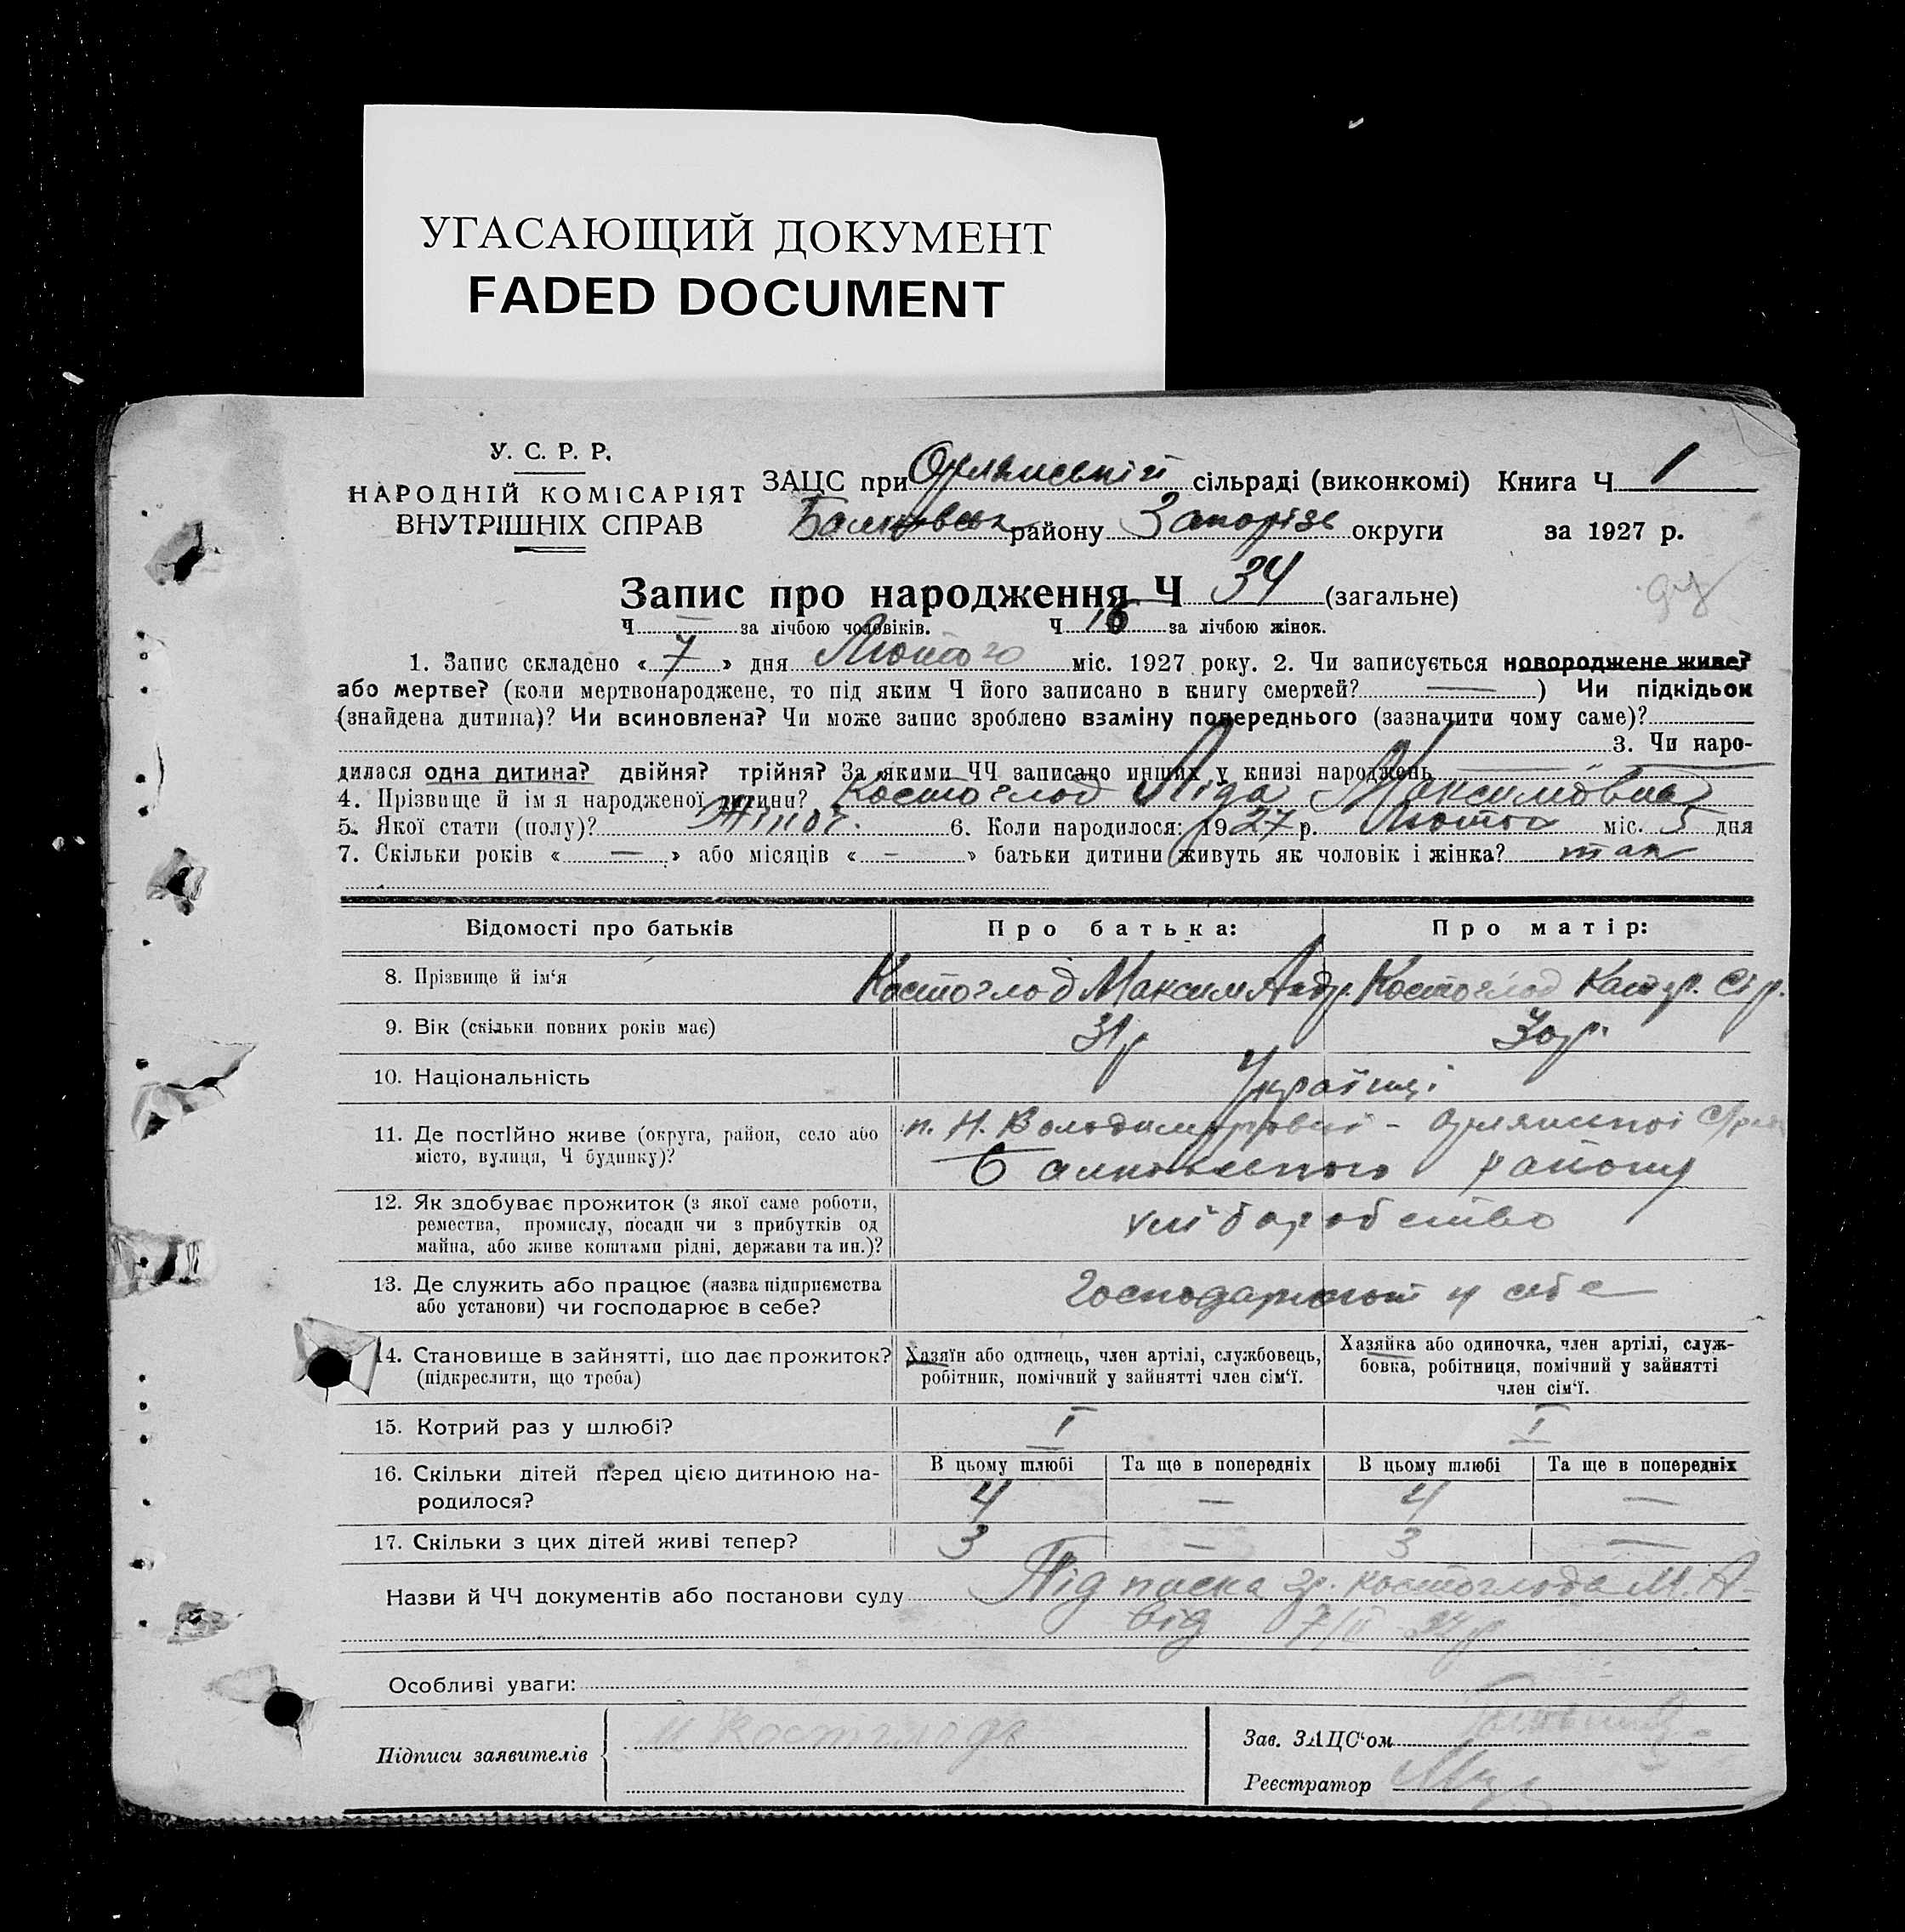 УГАСАЮЩИЙ ДОКУМЕНТ
FADED DOCUMENT
У. С. Р. Р.
НАРОДНІЙ КОМІСАРІЯТ
ВНУТРІШНІХ СПРАВ
ЗАЦС при Орлянській сільраді (виконкомі) Книга Ч. 1
району Запорізь округи за 1927 р.
Запис про народження Ч 34 (загальне)
Ч. — за лічбою чоловіків. Ч. 16 за лічбою жінок.
1. Запис складено « 7 » дня Лютого міс. 1927 року. 2. Чи записується новороджене живе?
або мертве? (коли мертвонароджене, то під яким Ч його записано в книгу смертей? — ) Чи підкідьок
(знайдена дитина)? Чи всиновлена? Чи може запис зроблено взаміну попереднього (зазначити чому саме)?
3. Чи наро-
дилася одна дитина? двійня? трійня? За якими ЧЧ записано инших у книзі народжень —
4. Прізвище й ім я народженої дитини? Костоглод Ліда Максимовна
5. Якої стати (полу)? Жіноч. 6. Коли народилося: 1927 р. Лютого міс. 5 дня
7. Скільки років « — » або місяців « — » батьки дитини живуть як чоловік і жінка? так
Відомості про батьків Про батька: Про матір:
8. Прізвище й ім‘я Костоглод Максим Андр. Костоглод
9. Вік (скільки повних років має) 31 р 30 р.
10. Національність Українці
11. Де постійно живе (округа, район, село або
місто, вулиця, Ч будинку)?
п. Н. Володимировці - Орлянської С/ради
району
12. Як здобуває прожиток (з якої саме роботи,
ремества, промислу, посади чи з прибутків од
майна, або живе коштами рідні, держави та ин.)?
хліборобство
13. Де служить або працює (назва підприємства
або установи) чи господарює в себе?
Господарюют у себе
14. Становище в зайнятті, що дає прожиток?
(підкреслити, що треба)
Хазяїн або одинець, член артілі, службовець,
робітник, помічний у зайнятті член сім‘ї.
Хазяйка або одиночка, член артілі, служ-
бовка, робітниця, помічний у зайнятті
член сім‘ї.
15. Котрий раз у шлюбі? I I
16. Скільки дітей перед цією дитиною на-
родилося?
В цьому шлюбі Та ще в попередніх В цьому шлюбі Та ще в попередніх
4 — 4 —
17. Скільки з цих дітей живі тепер? 3 — 3 —
Назви й ЧЧ документів або постанови суду Підписка гр. Костоглода М. А-
від 7/II 27 р
Особливі уваги:
Підписи заявителів М Костоглодъ
Зав. ЗАЦС‘ом
Реєстратор